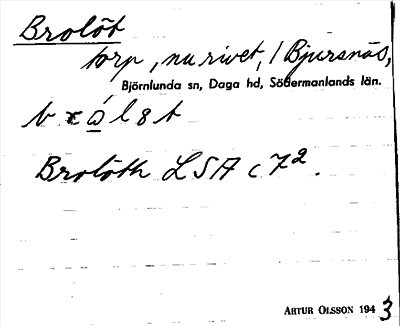 Brolöt
torp, nu rivet, / Bjursnäs,
Björnlunda sn, Daga hd, Södermanlands län.
Brolöth LSA c 72.
ARTUR OLSSON 1943